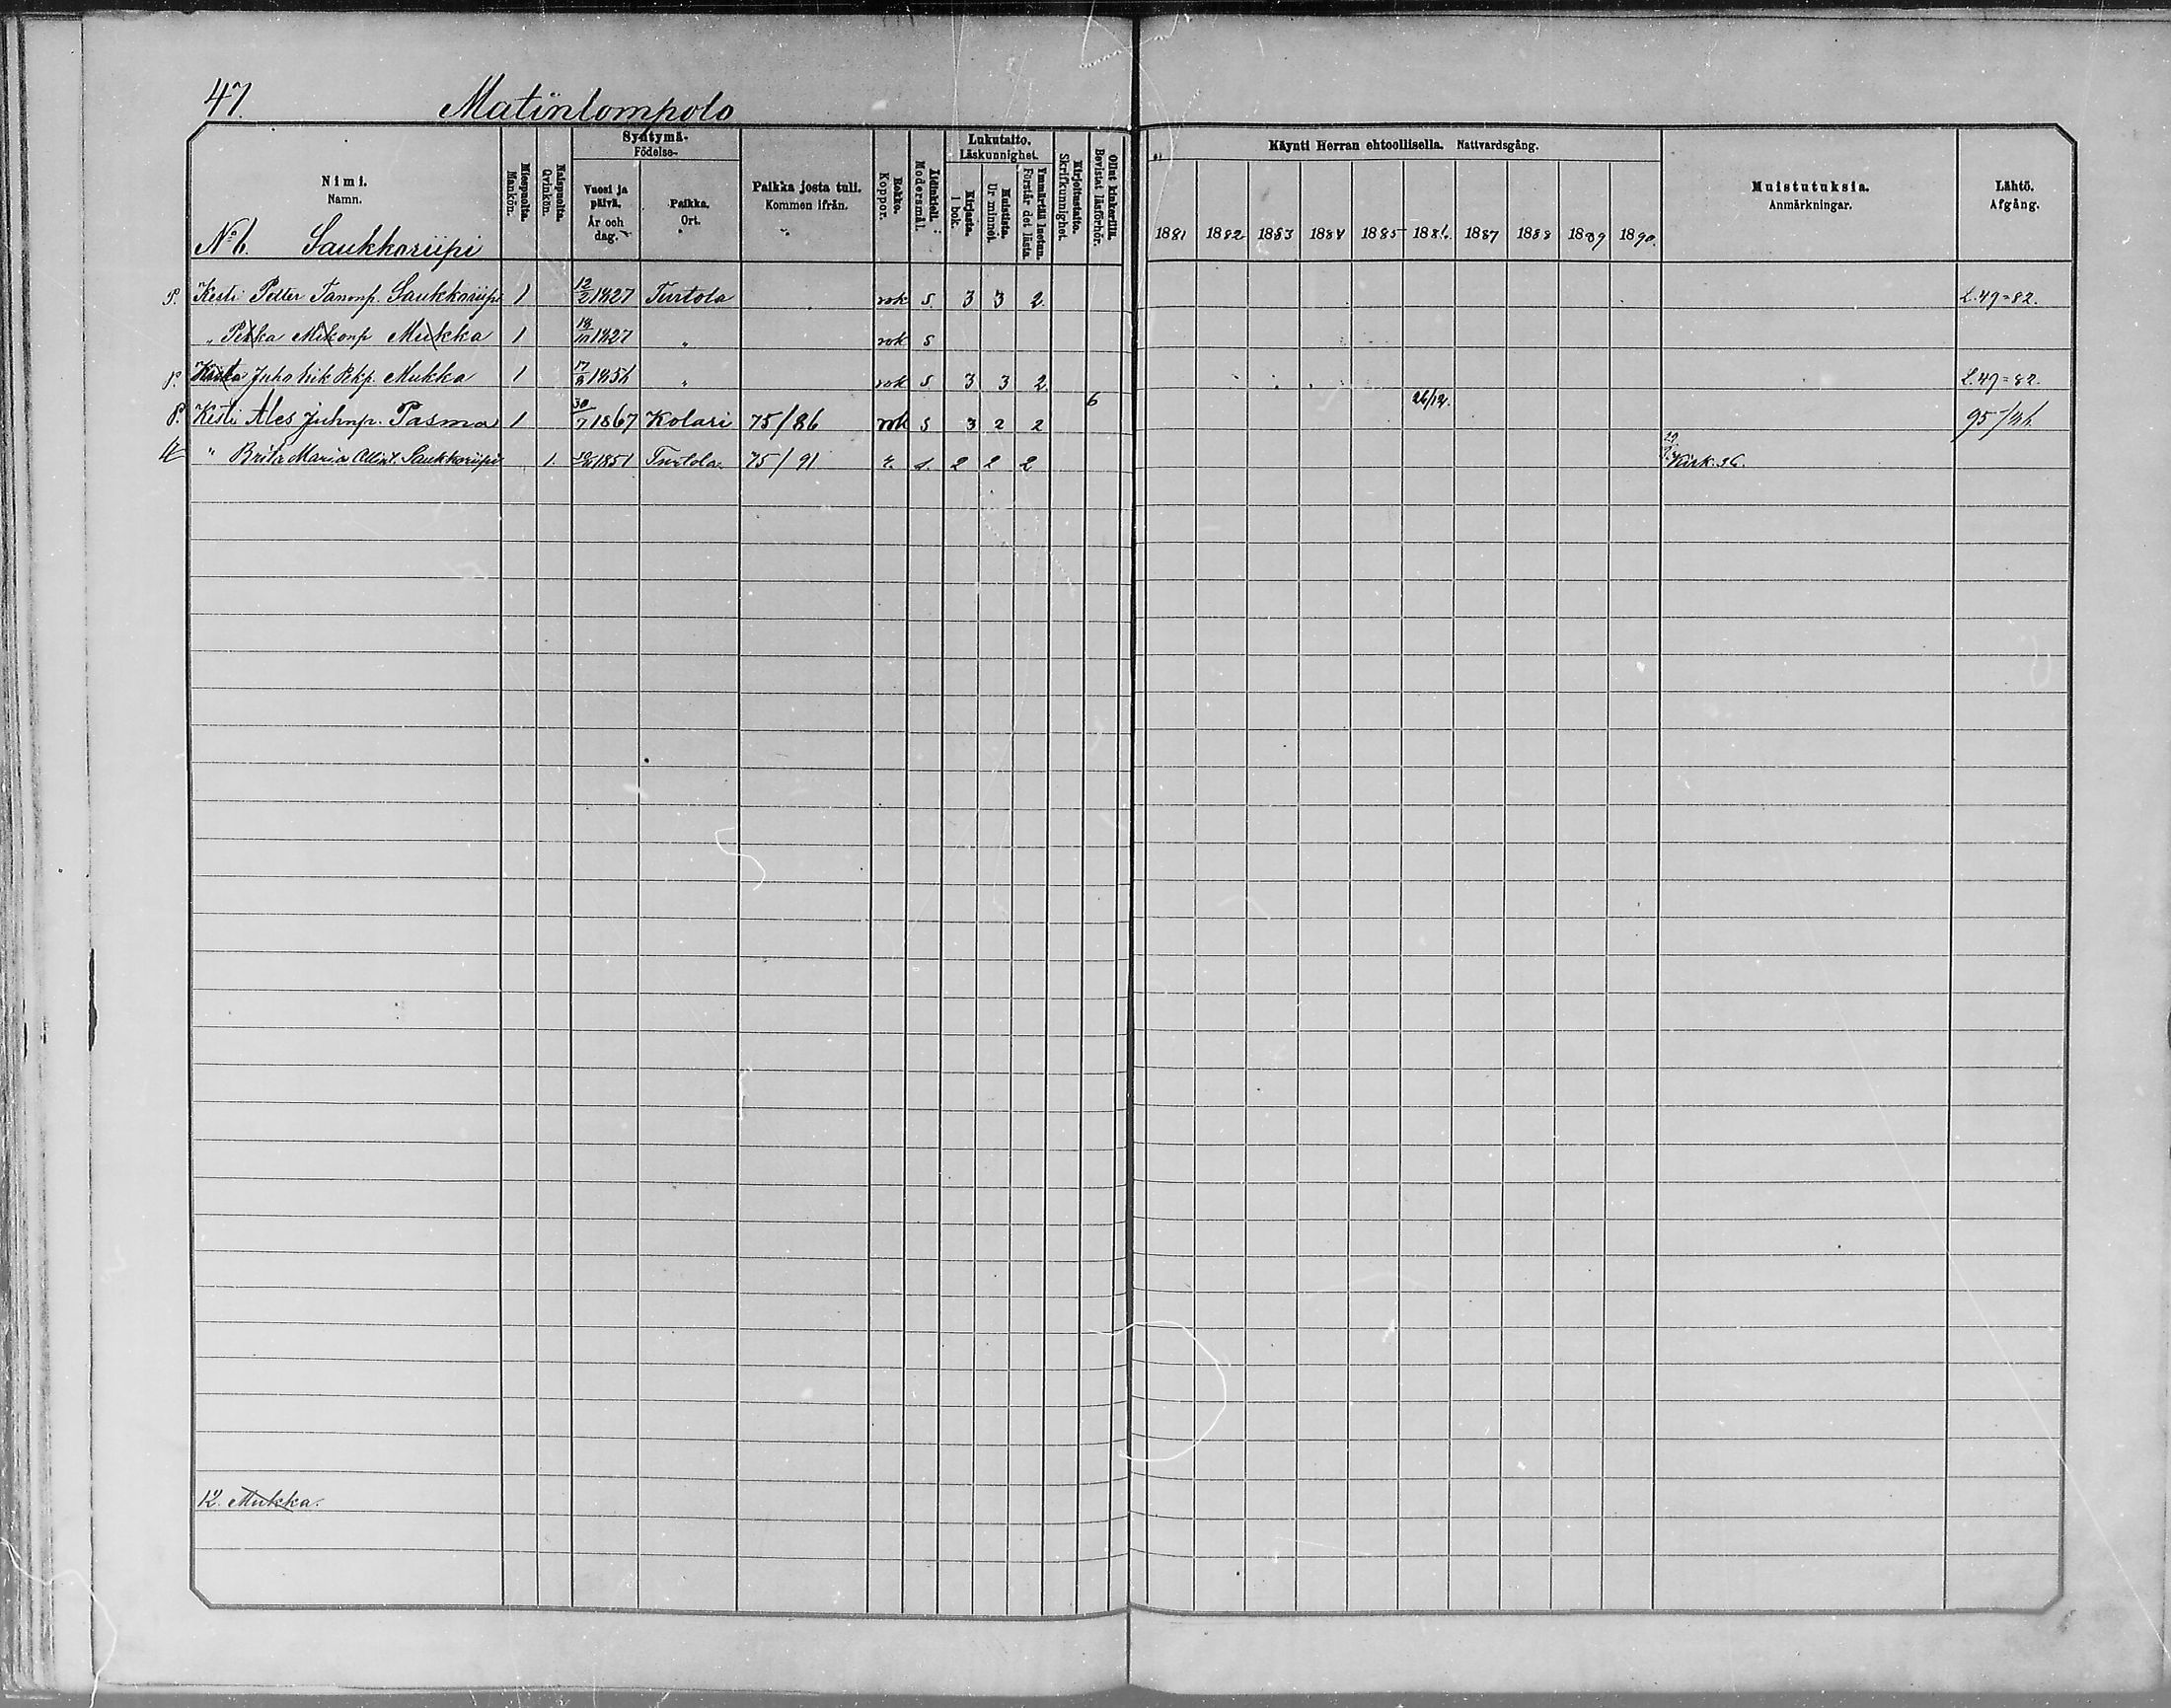 47. Matinlompolo
Nimi. Namn.
Miespuolta. Mankön.
Naispuolta. Qvinkön.
Syntymä- Födelse-
Vuosi ja päivä. År och dag.
Paikka. Ort.
Paikka josta tuli. Kommen ifrån.
Rokko. Koppor.
Äidinkieli. Modersmål.
Lukutaito. Läskunnighet.
Kirjasta. I bok.
Muistista. Ur minnet.
Ymmärtää luetun. Förstår det lästa.
Kirjoitustaito. Skrifkunnighet.
Ollut kinkerillä. Bevistat läsförhör.
Käynti Herran ehtoollisella. Nattvardsgång.
1881 1882 1883 1884 1885 1886. 1887 1888 1889 1890.
Muistutuksia. Anmärkningar.
Lähtö. Afgång.
No 6. Saukkoriipi
P. Kesti Petter Tanonp. Saukkoriipi 1 12/2 1827 Turtola rok s. 3 3 2. L. 49=82.
" Pekka Mikonp Mukka 1 1827 " rok s
P. Juho Erik Pkp. Mukka 1 17/8 185 " rok s. 3 3 2. L. 49=82.
P. Kesti Ales Juhnp. Pasma 1 30/7 1867 Kolari 75/86 rok s 3 2 2 6 26/12. 95/
" Brita Maria Saukkoriipi 1. 1851 Turtola. 75/91 r. s. 2 2 2 Kirk. 36.
12. Mukka.